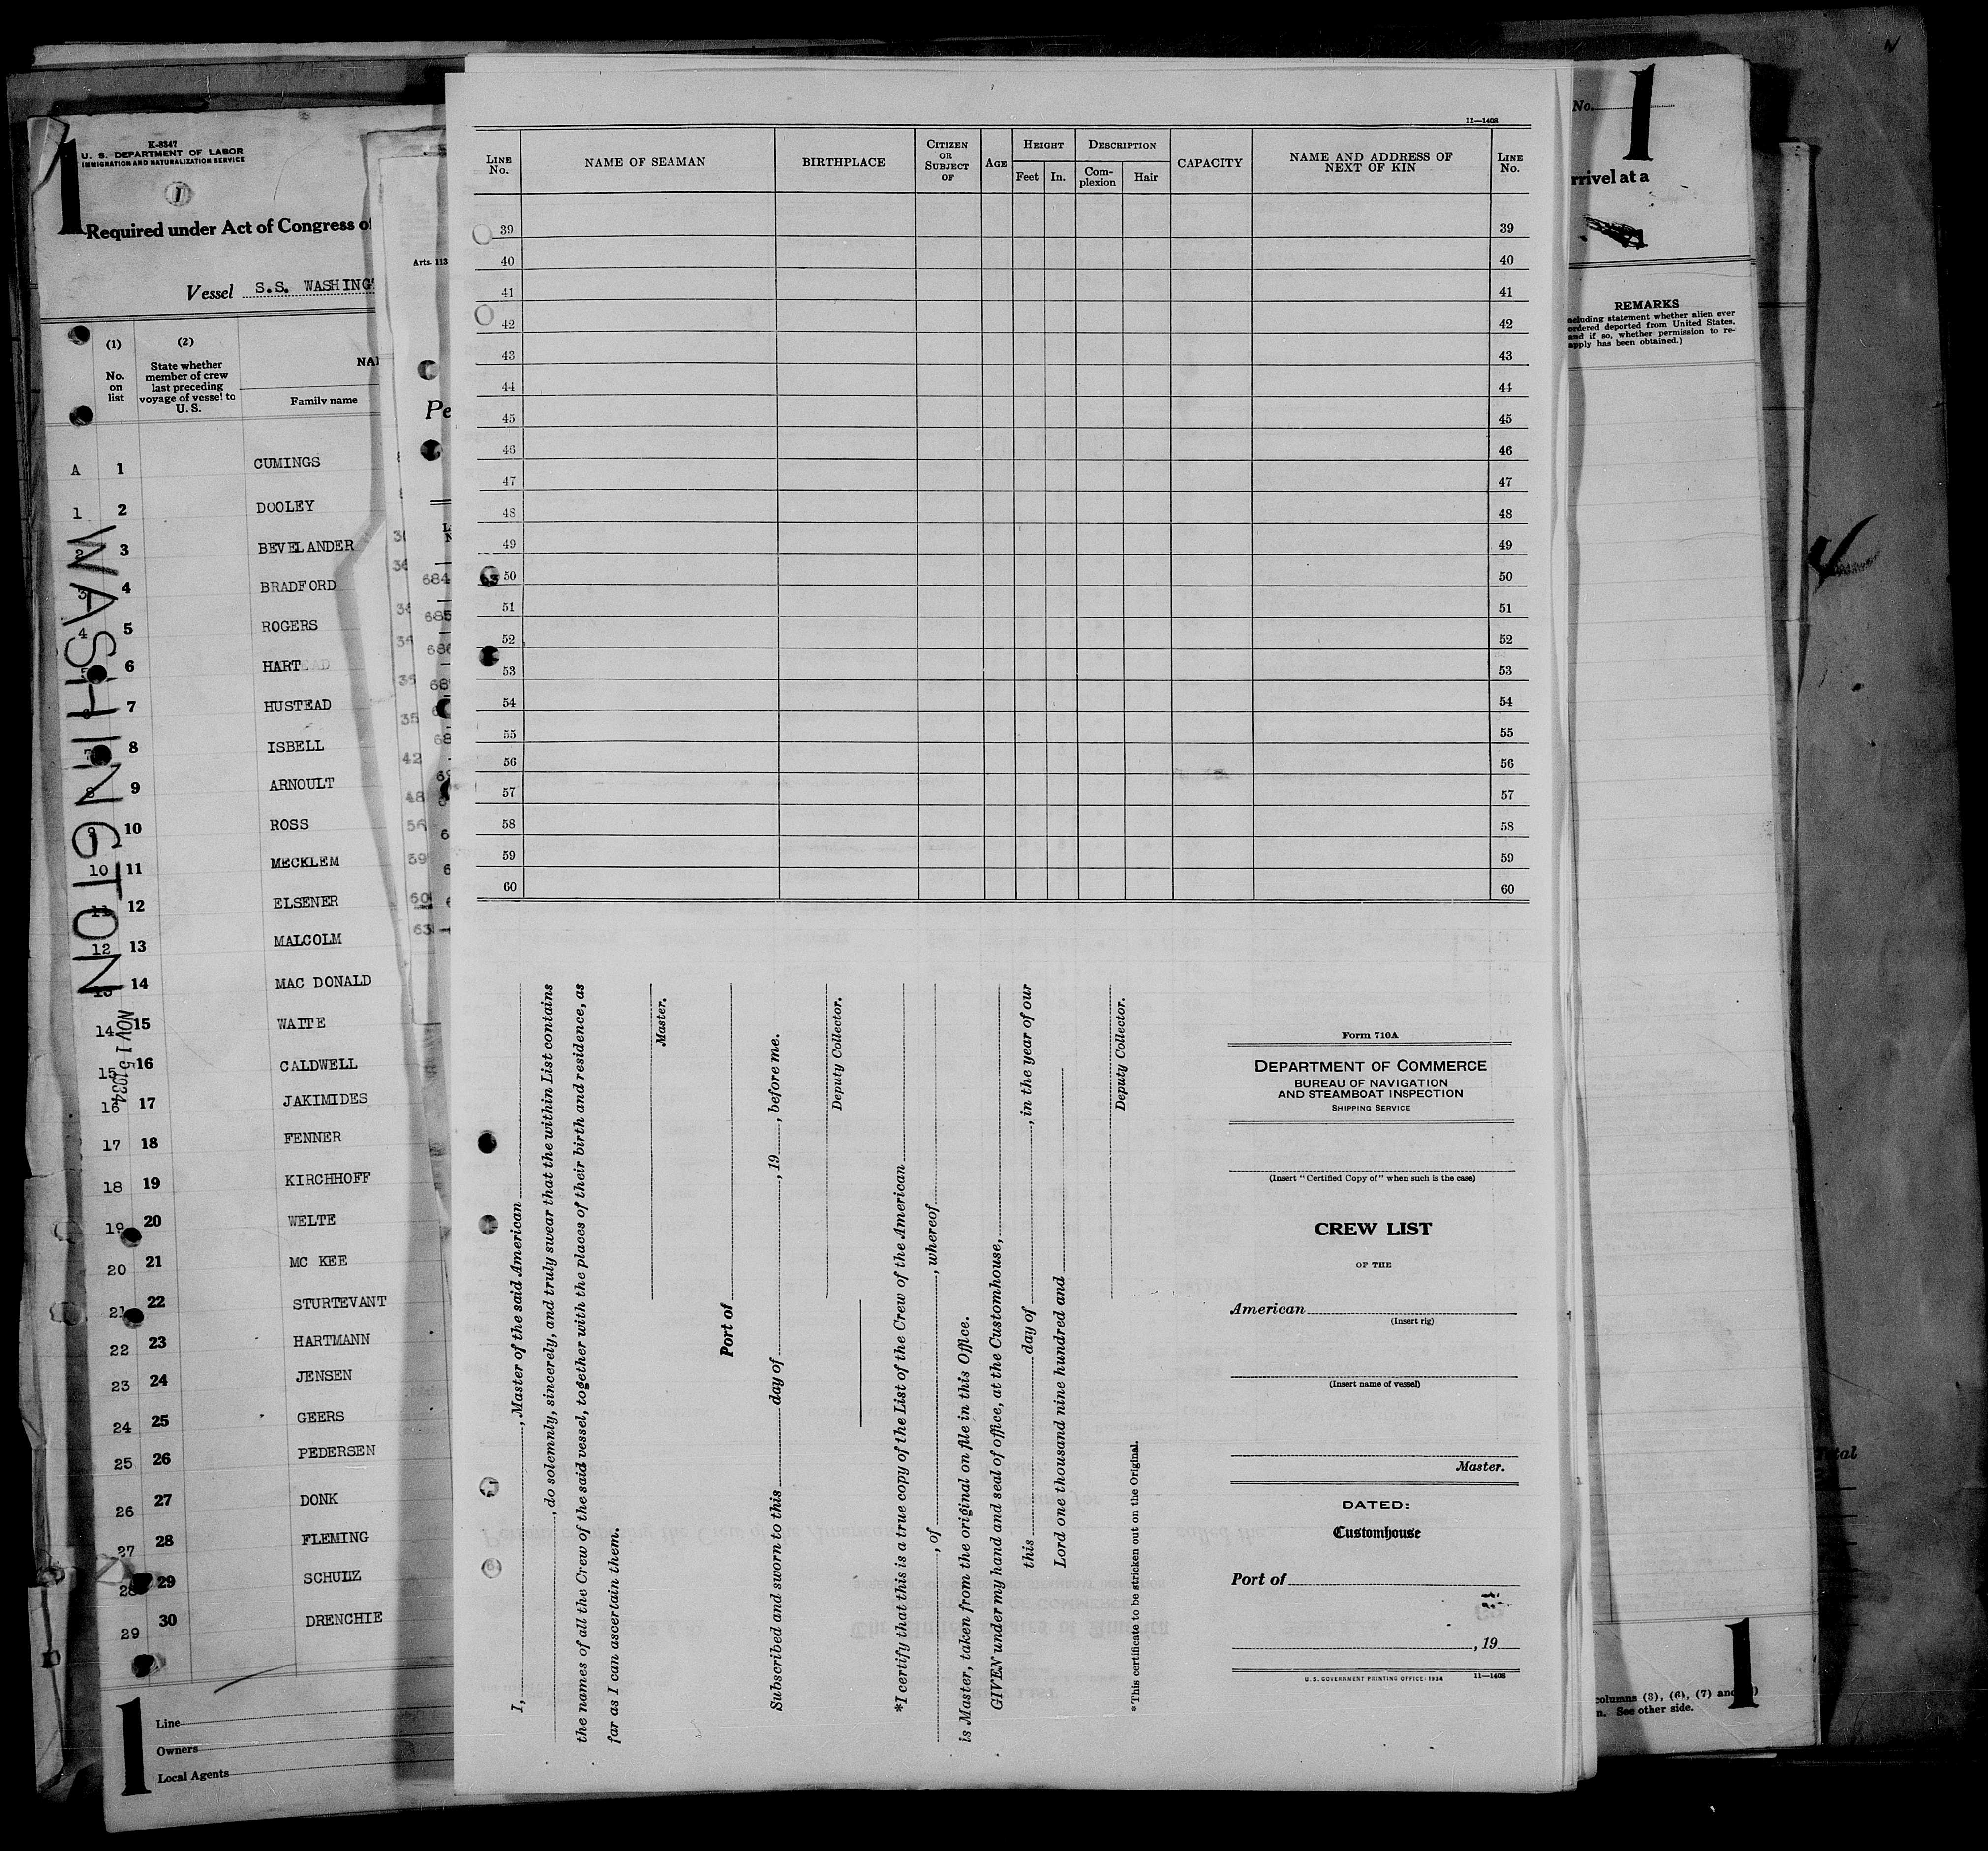 K-8347
U. S. DEPARTMENT OF LABOR
IMMIGRATION AND NATURALIZATION SERVICE
1
Required under Act of Congress of
Vessel S.S. WASHING
(1)
No.
on
list
(2)
State whether
member of crew
last preceding
voyage of vessel to
U. S.
NA
Family name
A 1 CUMINGS
1 2 DOOLEY
2 3 BEVELANDER
3 4 BRADFORD
4 5 ROGERS
5 6 HART
6 7 HUSTEAD
7 8 ISBELL
8 9 ARNOULT
9 10 ROSS
10 11 MECKLEM
11 12 ELSENER
12 13 MALCOLM
13 14 MAC DONALD
14 15 WAITE
15 16 CALDWELL
16 17 JAKIMIDES
17 18 FENNER
18 19 KIRCHHOFF
19 20 WELTE
20 21 MC KEE
21 22 STURTEVANT
22 23 HARTMANN
23 24 JENSEN
24 25 GEERS
25 26 PEDERSEN
26 27 DONK
27 28 FLEMING
28 29 SCHULZ
29 30 DRENCHIE
WASHINGTON
NOV 15 1934
1
Line
Owners
Local Agents
Arts. 113
Pe
684
685
11—1408
LINE No.
NAME OF SEAMAN
BIRTHPLACE
CITIZEN OR SUBJECT OF
AGE
HEIGHT
Feet
In.
DESCRIPTION
Complexion
Hair
CAPACITY
NAME AND ADDRESS OF NEXT OF KIN
LINE No.
39 39
40 40
41 41
42 42
43 43
44 44
45 45
46 46
47 47
48 48
49 49
50 50
51 51
52 52
53 53
54 54
55 55
56 56
57 57
58 58
59 59
60 60
I, , Master of the said American
, do solemnly, sincerely, and truly swear that the within List contains
the names of all the Crew of the said vessel, together with the places of their birth and residence, as
far as I can ascertain them.
Master.
Port of
Subscribed and sworn to this day of , 19 , before me.
Deputy Collector.
*I certify that this is a true copy of the List of the Crew of the American
, of , whereof
is Master, taken from the original on file in this Office.
GIVEN under my hand and seal of office, at the Customhouse,
this day of , in the year of our
Lord one thousand nine hundred and
Deputy Collector.
*This certificate to be stricken out on the Original.
Form 710A
DEPARTMENT OF COMMERCE
BUREAU OF NAVIGATION
AND STEAMBOAT INSPECTION
SHIPPING SERVICE
(Insert "Certified Copy of" when such is the case)
CREW LIST
OF THE
American
(Insert rig)
(Insert name of vessel)
Master.
DATED:
Customhouse
Port of
, 19
U. S. GOVERNMENT PRINTING OFFICE: 1934 11—1408
No.
1
rrival at a
REMARKS
ncluding statement whether alien ever
ordered deported from United States,
and if so, whether permission to re-
apply has been obtained.)
columns (3), (6), (7) and
n. See other side.
1